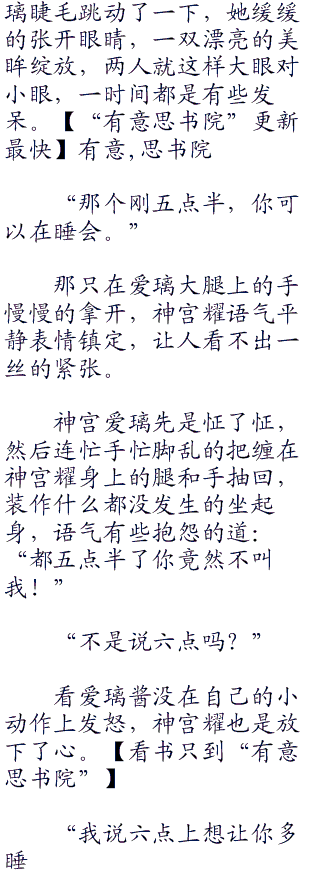 璃睫毛跳动了一下，她缓缓
的张开眼睛，一双漂亮的美
眸绽放，两人就这样大眼对
小眼，一时间都是有些发
呆。【“有意思书院”更新
最快】有意,思书院
“那个刚五点半，你可
以在睡会。”
那只在爱璃大腿上的手
慢慢的拿开，神宫耀语气平
静表情镇定，让人看不出一
丝的紧张。
神宫爱璃先是怔了怔，
然后连忙手忙脚乱的把缠在
神宫耀身上的腿和手抽回，
装作什么都没发生的坐起
身，语气有些抱怨的道：
“都五点半了你竟然不叫
我！”
“不是说六点吗？”
看爱璃酱没在自己的小
动作上发怒，神宫耀也是放
下了心。【看书只到“有意
思书院”】
“我说六点上想让你多
睡